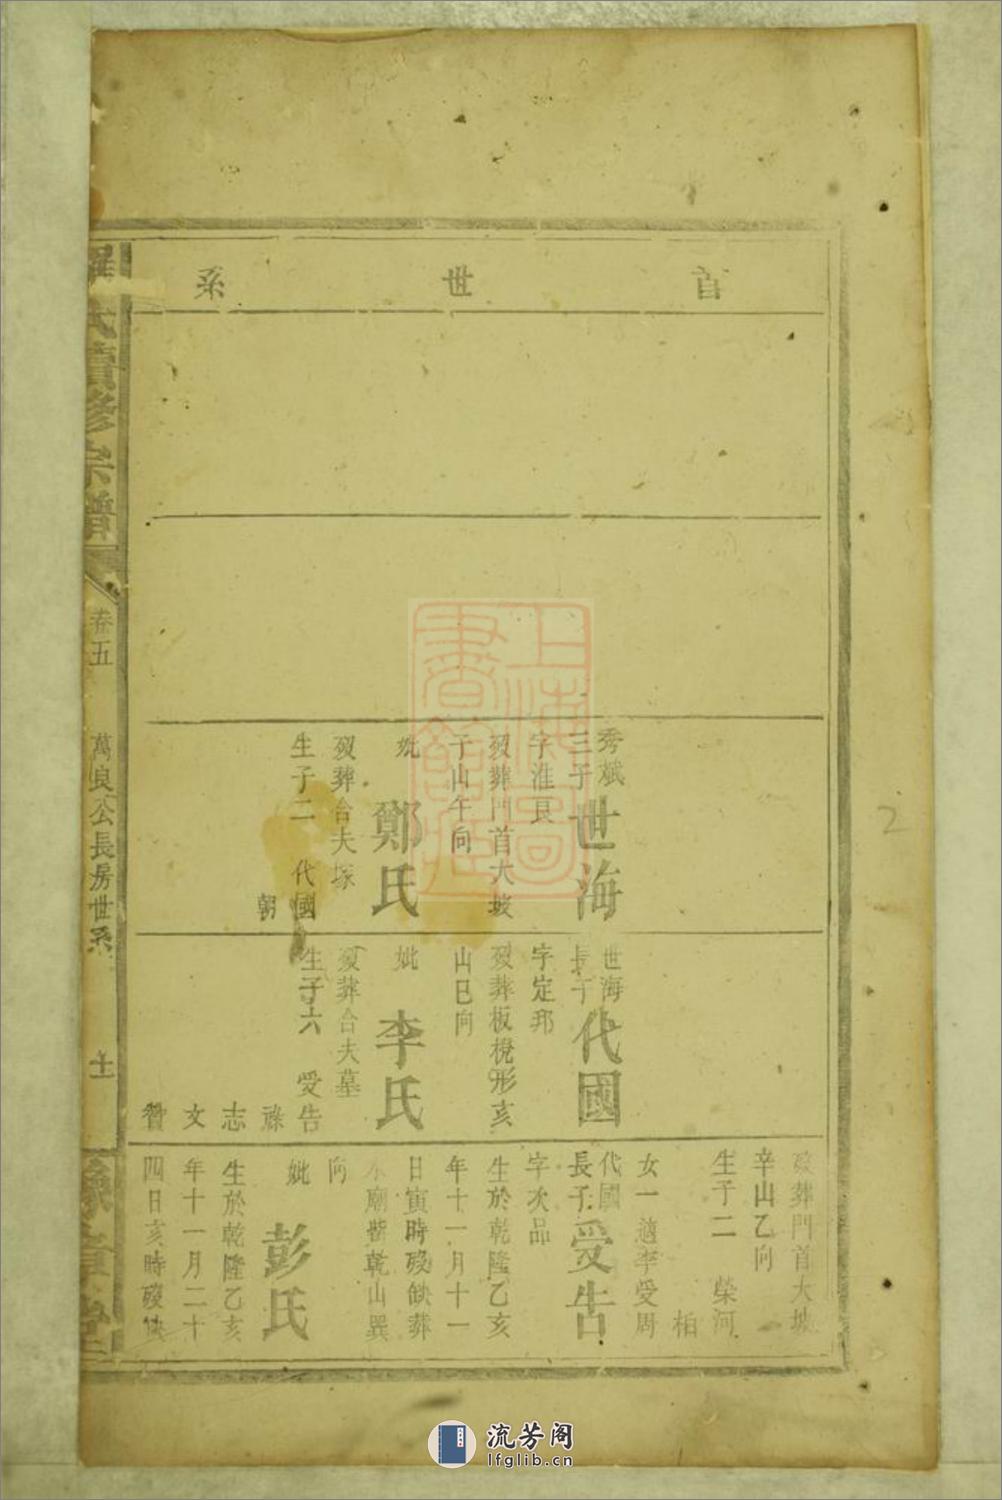 首世系
秀斌
三子
世海
字淮良
歿葬門首大坡
子山午向
妣
鄭氏
歿葬合夫塚
生子二 代國
朝
世海
長子
代國
字定邦
歿葬板櫈形亥
山巳向
妣
李氏
歿葬合夫墓
生子六 受告
祿
志
文
贊
歿葬門首大坡
辛山乙向
生子二 榮河
柏
女一適李受周
代國
長子
受告
字次品
生於乾隆乙亥
年十一月十一
日寅時歿缺葬
廟背乾山巽
向
妣
彭氏
生於乾隆乙亥
年十一月二十
四日亥時歿缺
氏續修宗譜
卷五
萬良公長房世系
十一
上海圖書館藏
流芳阁
lfglib.cn
2